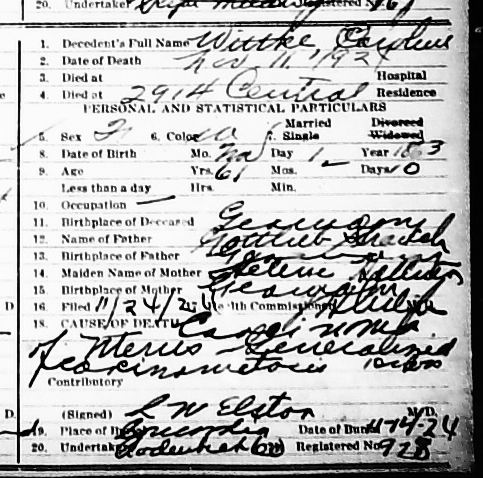 20. Undertaker Registered No
1. Decedent's Full Name Wittke, Caroline
2. Date of Death Nov. 11, 1924
3. Died at Hospital
4. Died at 2914 Central Residence
PERSONAL AND STATISTICAL PARTICULARS
5. Sex F 6. Color W 7. Married Single Divorced Widowed
8. Date of Birth Mo. Nov Day 1 Year 1863
9. Age Yrs. 61 Mos. — Days 10
Less than a day Hrs. Min.
10. Occupation —
11. Birthplace of Deceased Germany
12. Name of Father Gottlieb
13. Birthplace of Father Germany
14. Maiden Name of Mother Helene
15. Birthplace of Mother Germany
D. 16. Filed 11/24/24 17. Health Commissioner M.D.
18. CAUSE OF DEATH Carcinoma
of Uterus - Generalized
Carcinomatosis
Contributory
D. (Signed) L W Elston M.D.
19. Place of Burial Concordia Date of Burial 11-14-24
20. Undertaker Registered No. 928